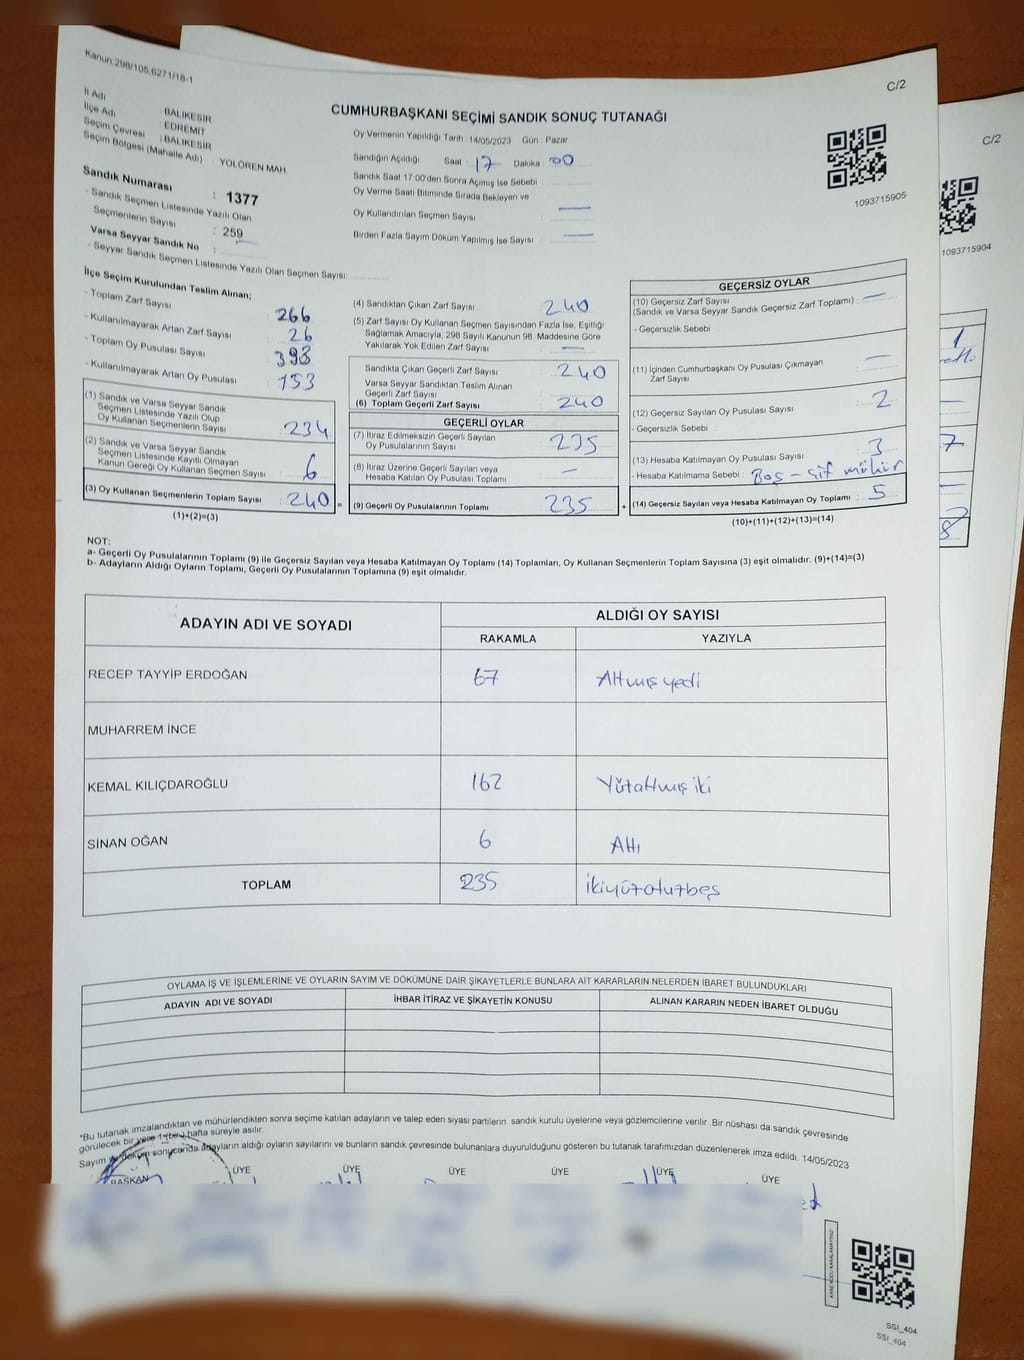 Kanun.298/105,6271/18-1
C/2
İl Adı : BALIKESİR
İlçe Adı : EDREMİT
Seçim Çevresi : BALIKESİR
Seçim Bölgesi (Mahalle Adı) : YOLÖREN MAH
CUMHURBAŞKANI SEÇİMİ SANDIK SONUÇ TUTANAĞI
Oy Vermenin Yapıldığı Tarih 14/05/2023 Gün : Pazar
Sandığın Açıldığı Saat : 17 Dakika : 00
Sandık Saat 17:00'den Sonra Açımış İse Sebebi :
Oy Verme Saati Bitiminde Sırada Bekleyen ve
Oy Kullandırılan Seçmen Sayısı : —
Birden Fazla Sayım Döküm Yapılmış İse Sayısı : —
1093715905
Sandık Numarası : 1377
- Sandık Seçmen Listesinde Yazılı Olan
Seçmenlerin Sayısı : 259
Varsa Seyyar Sandık No : —
- Seyyar Sandık Seçmen Listesinde Yazılı Olan Seçmen Sayısı:
İlçe Seçim Kurulundan Teslim Alınan;
- Toplam Zarf Sayısı : 266
- Kullanılmayarak Artan Zarf Sayısı : 26
- Toplam Oy Pusulası Sayısı : 393
- Kullanılmayarak Artan Oy Pusulası : 153
(1) Sandık ve Varsa Seyyar Sandık
Seçmen Listesinde Yazılı Olup
Oy Kullanan Seçmenlerin Sayısı : 234
(2) Sandık ve Varsa Seyyar Sandık
Seçmen Listesinde Kayıtlı Olmayan
Kanun Gereği Oy Kullanan Seçmen Sayısı : 6
(3) Oy Kullanan Seçmenlerin Toplam Sayısı : 240 =
(1)+(2)=(3)
(4) Sandıktan Çıkan Zarf Sayısı : 240
(5) Zarf Sayısı Oy Kullanan Seçmen Sayısından Fazla İse, Eşitliği
Sağlamak Amacıyla, 298 Sayılı Kanunun 98. Maddesine Göre
Yakılarak Yok Edilen Zarf Sayısı : —
Sandıkta Çıkan Geçerli Zarf Sayısı : 240
Varsa Seyyar Sandıktan Teslim Alınan
Geçerli Zarf Sayısı :
(6) Toplam Geçerli Zarf Sayısı : 240
GEÇERLİ OYLAR
(7) İtiraz Edilmeksizin Geçerli Sayılan
Oy Pusulalarının Sayısı : 235
(8) İtiraz Üzerine Geçerli Sayılan veya
Hesaba Katılan Oy Pusulası Toplamı : —
(9) Geçerli Oy Pusulalarının Toplamı : 235 +
GEÇERSİZ OYLAR
(10) Geçersiz Zarf Sayısı
(Sandık ve Varsa Seyyar Sandık Geçersiz Zarf Toplamı) : —
- Geçersizlik Sebebi :
(11) İçinden Cumhurbaşkanı Oy Pusulası Çıkmayan
Zarf Sayısı : —
(12) Geçersiz Sayılan Oy Pusulası Sayısı : 2
- Geçersizlik Sebebi :
(13) Hesaba Katılmayan Oy Pusulası Sayısı : 3
- Hesaba Katılmama Sebebi : Boş - Çift mühür
(14) Geçersiz Sayılan veya Hesaba Katılmayan Oy Toplamı : 5
(10)+(11)+(12)+(13)=(14)
NOT:
a- Geçerli Oy Pusulalarının Toplamı (9) ile Geçersiz Sayılan veya Hesaba Katılmayan Oy Toplamı (14) Toplamları, Oy Kullanan Seçmenlerin Toplam Sayısına (3) eşit olmalıdır. (9)+(14)=(3)
b- Adayların Aldığı Oyların Toplamı, Geçerli Oy Pusulalarının Toplamına (9) eşit olmalıdır.
ADAYIN ADI VE SOYADI
ALDIĞI OY SAYISI
RAKAMLA YAZIYLA
RECEP TAYYİP ERDOĞAN 67 Altmış yedi
MUHARREM İNCE
KEMAL KILIÇDAROĞLU 162 Yüzaltmış iki
SİNAN OĞAN 6 Altı
TOPLAM 235 ikiyüzotuzbeş
OYLAMA İŞ VE İŞLEMLERİNE VE OYLARIN SAYIM VE DÖKÜMÜNE DAİR ŞİKAYETLERLE BUNLARA AİT KARARLARIN NELERDEN İBARET BULUNDUKLARI
ADAYIN ADI VE SOYADI İHBAR İTİRAZ VE ŞİKAYETİN KONUSU ALINAN KARARIN NEDEN İBARET OLDUĞU
*Bu tutanak imzalandıktan ve mühürlendikten sonra seçime katılan adayların ve talep eden siyasi partilerin sandık kurulu üyelerine veya gözlemcilerine verilir. Bir nüshası da sandık çevresinde
görülecek bir yere 1 (bir) hafta süreyle asılır.
Sayım ve döküm sonucanda adayların aldığı oyların sayılarını ve bunların sandık çevresinde bulunanlara duyurulduğunu gösteren bu tutanak tarafımızdan düzenlenerek imza edildi. 14/05/2023
BAŞKAN ÜYE ÜYE ÜYE ÜYE ÜYE ÜYE
KARE KODU KARALAMAYINIZ!
SSI_404
SSI_404
C/2
1093715904
1
7
8